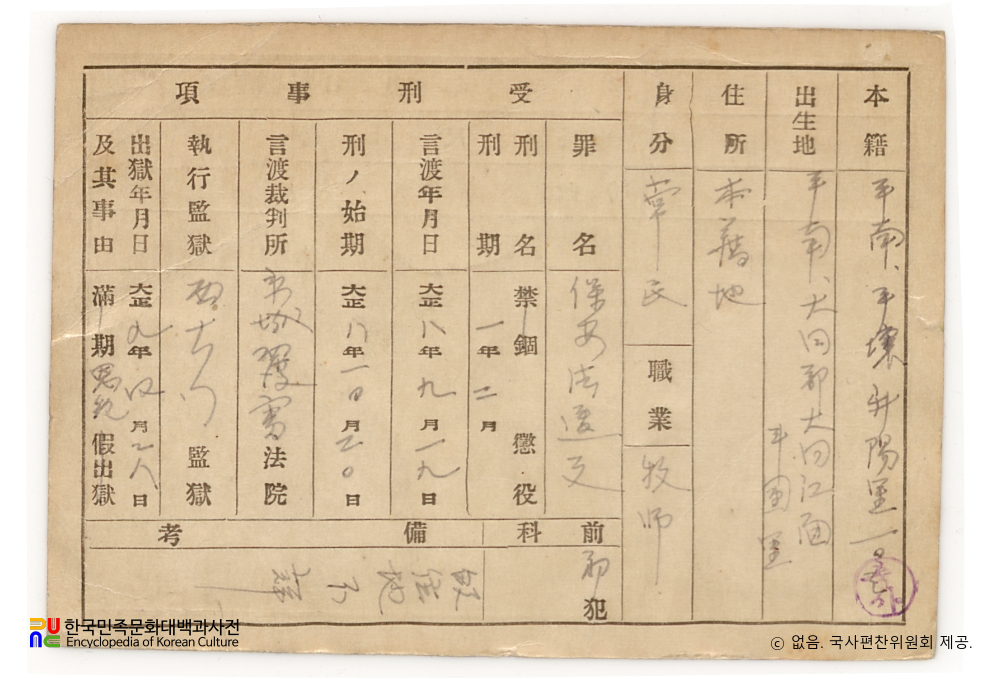 本籍 平南、平壤 井陽里一〇
出生地 平南、大同郡大同江面
里
住所 本籍地
身分 常民
職業 牧師
受刑事項
罪名 保安法違反
刑名 禁錮 懲役
刑期 一年 二月
言渡年月日 大正八年九月一九日
刑ノ始期 大正八年一〇月二〇日
言渡裁判所 京城覆審法院
執行監獄 西大門監獄
出獄年月日 大正九年四月二八日
及其事由 滿期 恩赦 假出獄
前科 初犯
備考
한국민족문화대백과사전
Encyclopedia of Korean Culture
ⓒ 없음. 국사편찬위원회 제공.